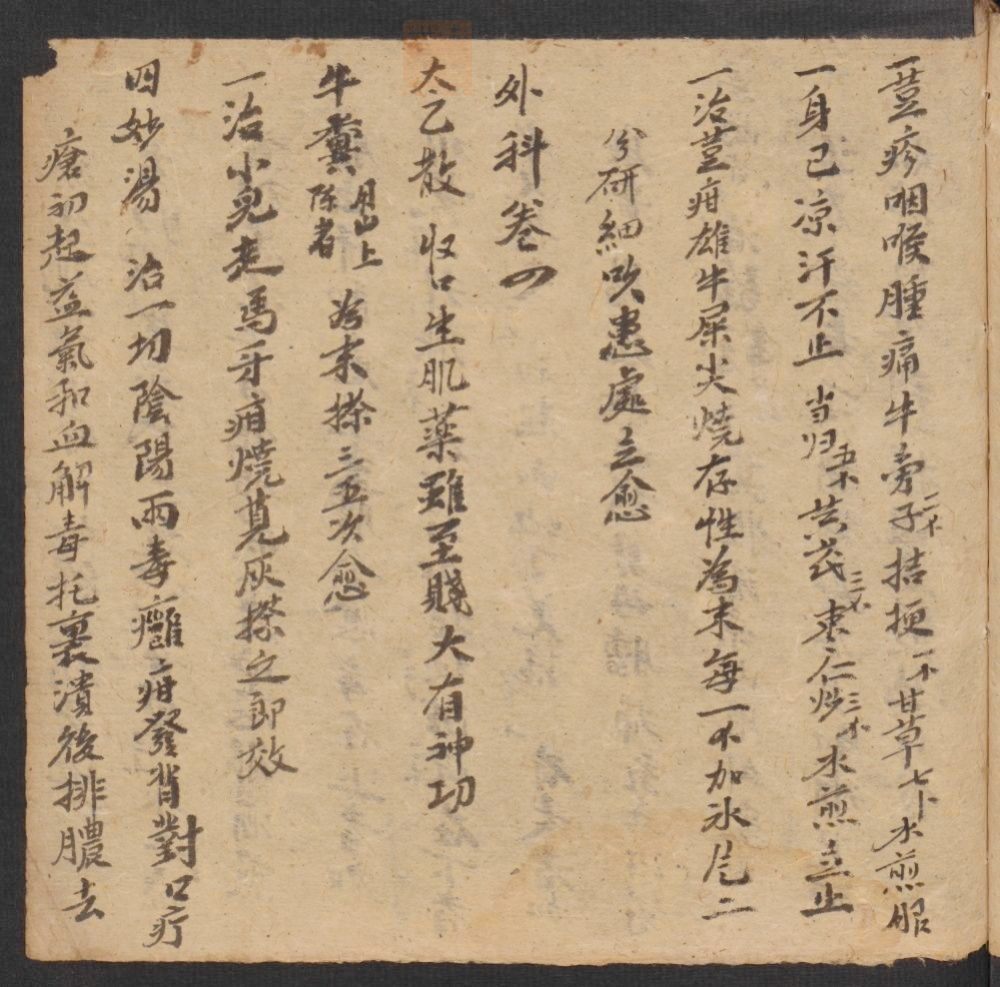 一荳疹咽喉腫痛牛旁子二个桔梗一个甘草七卜水煎服
一身已凉汗不止 当归五个 芪 三个 枣仁炒三个水煎立止
一治荳疳雄牛屎尖燒存性為末每一个加冰片二
分研細吹患處立愈
外科卷四
太乙散 收口生肌薬雖至賤大有神功
牛糞 上陈者 為末搽三五次愈
一治小兒走馬牙疳燒莧灰搽之即效
四妙湯 治一切陰陽兩毒癰疳發背對口疔
瘡初起益氣和血解毒托裏潰後排膿去